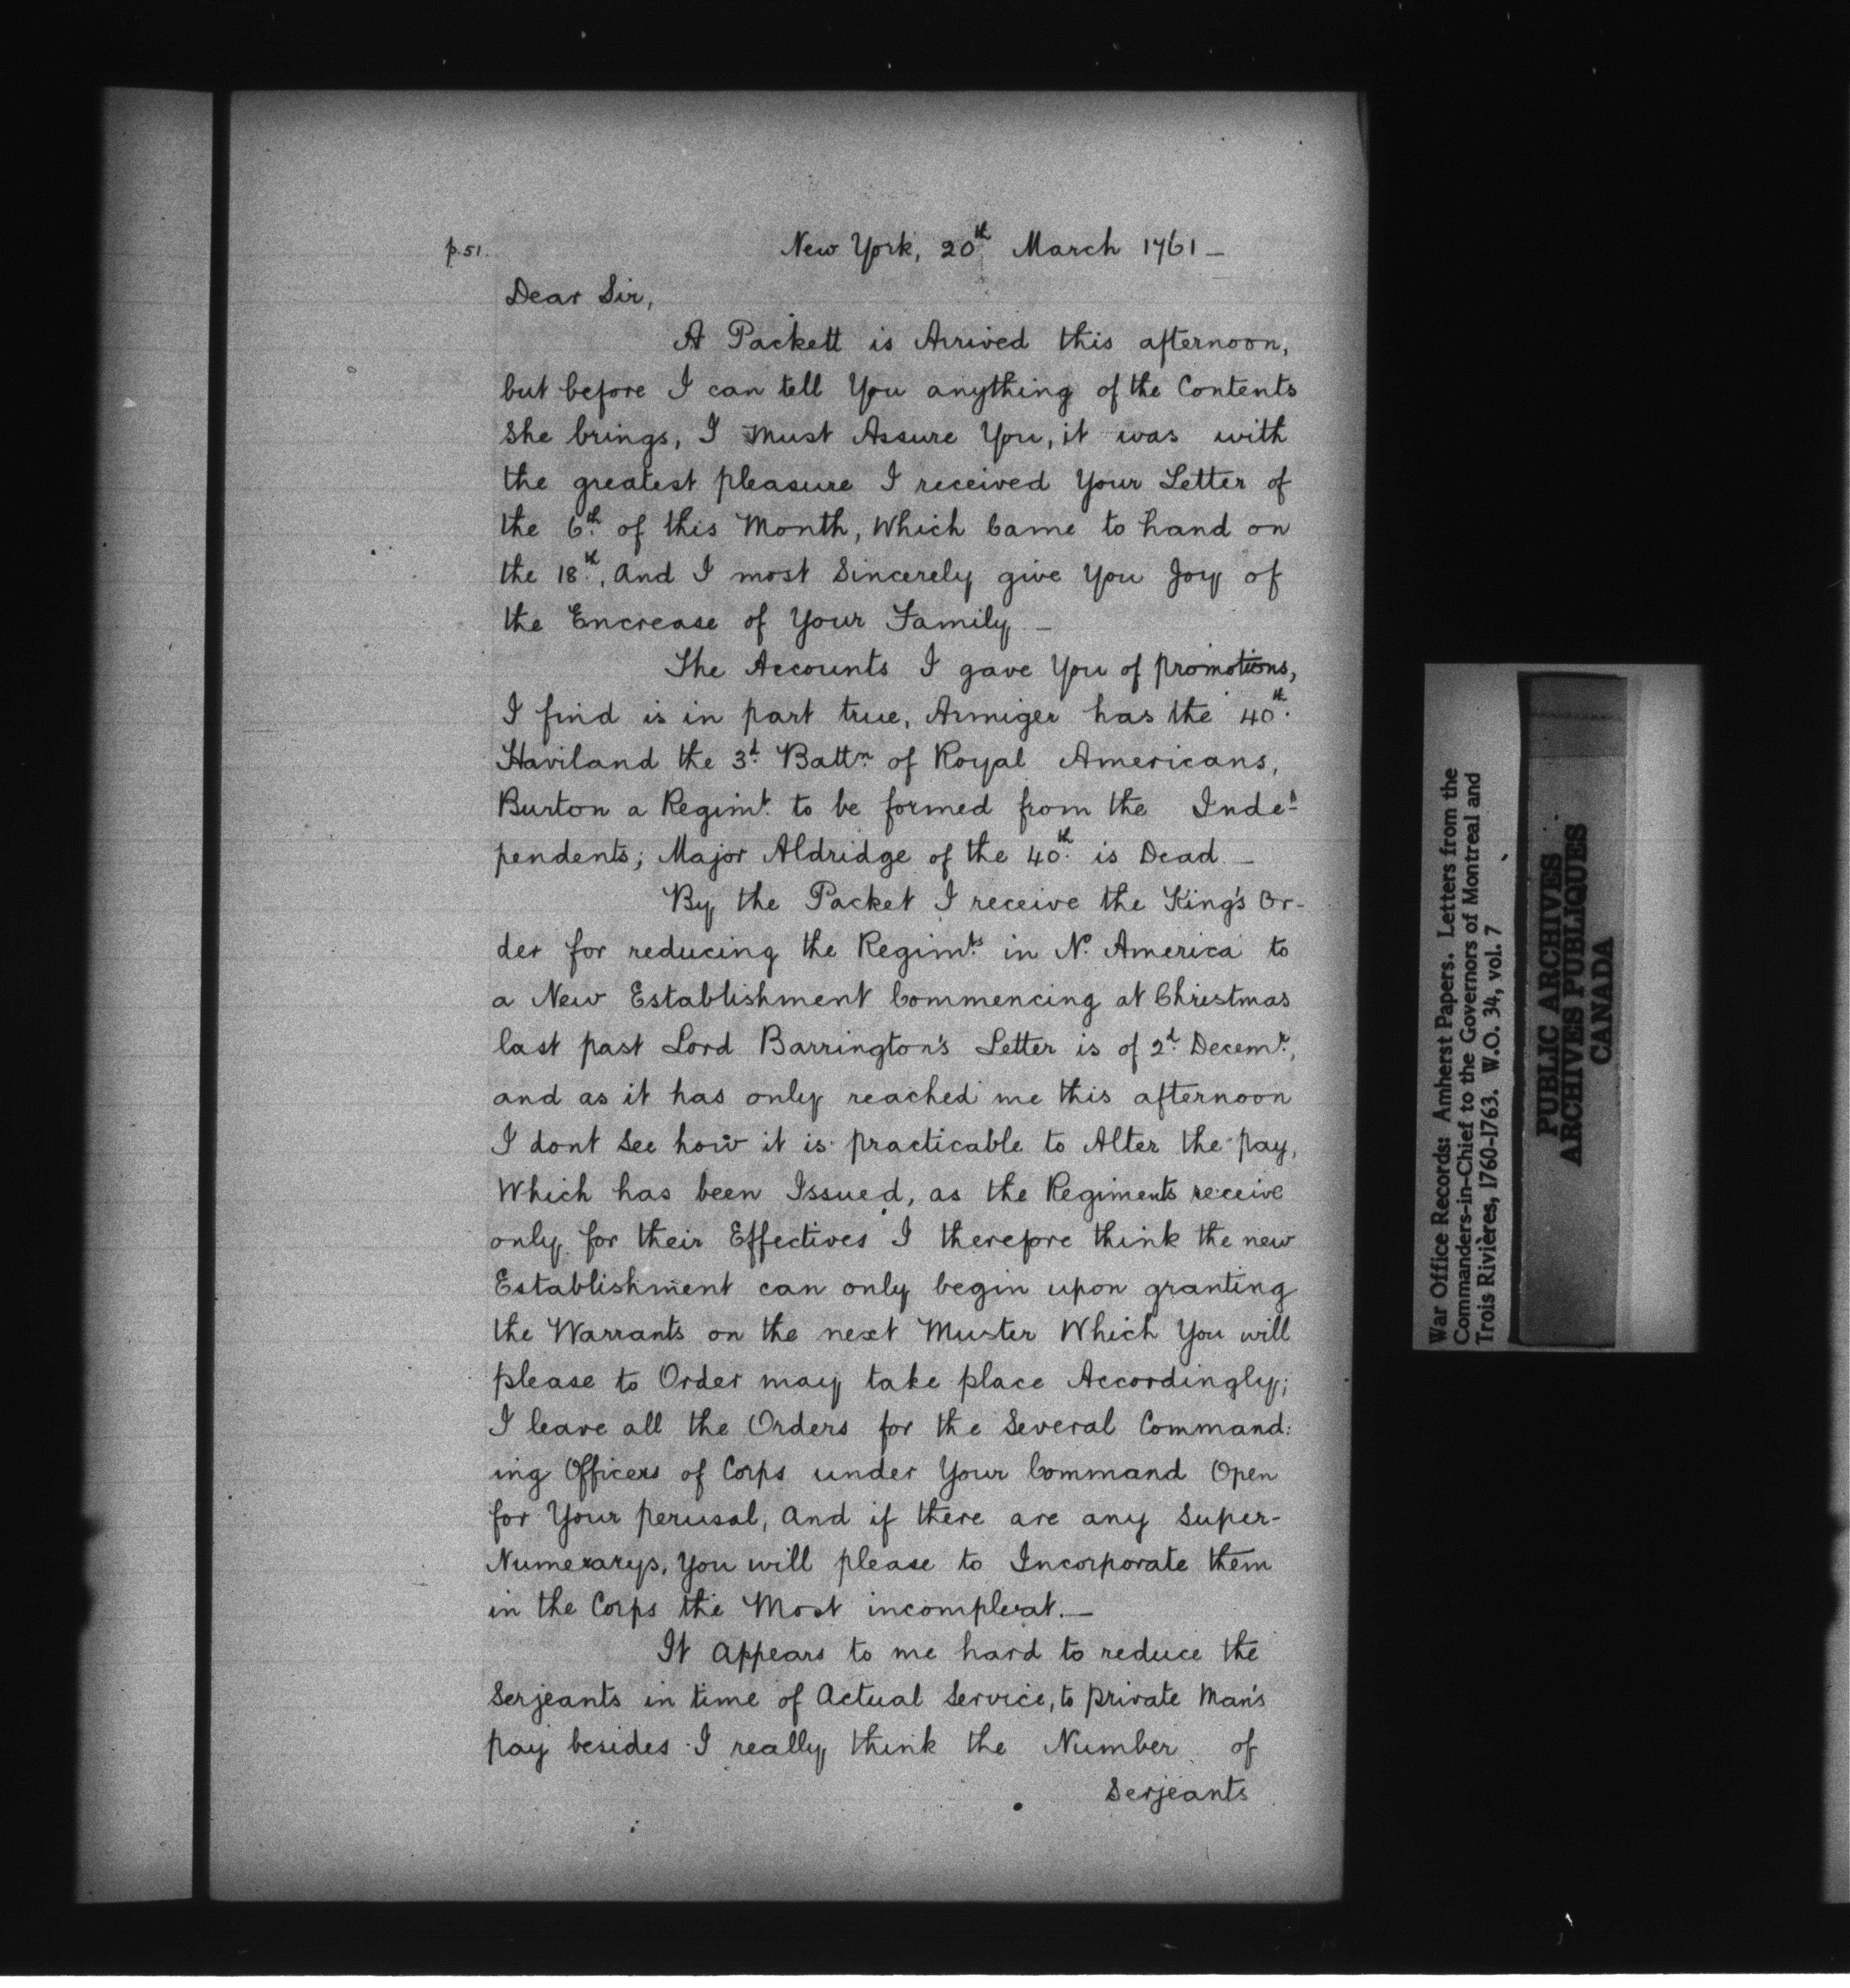 p.51. New York, 20th March 1761 —
Dear Sir,
A Packett is Arrived this afternoon,
but before I can tell You anything of the Contents
She brings, I must Assure You, it was with
the greatest pleasure I received Your Letter of
the 6th of this Month, Which Came to hand on
the 18th, And I most Sincerely give You Joy of
the Encrease of Your Family —
The Accounts I gave You of promotions,
I find is in part true, Armiger has the 40th.
Haviland the 3d Battn of Royal Americans,
Burton a Regimt to be formed from the Inde-
pendents; Major Aldridge of the 40th is Dead —
By the Packet I receive the King's Or-
der for reducing the Regimts in N. America to
a New Establishment Commencing at Christmas
last past Lord Barrington's Letter is of 2d Decemr,
and as it has only reached me this afternoon
I dont See how it is practicable to Alter the pay,
Which has been Issued, as the Regiments receive
only for their Effectives I therefore think the new
Establishment can only begin upon granting
the Warrants on the next Muster Which You will
please to Order may take place Accordingly;
I leave all the Orders for the Several Command:
ing Officers of Corps under Your Command Open
for Your perusal, And if there are any Super-
Numerarys, You will please to Incorporate them
in the Corps the Most incompleat. —
It Appears to me hard to reduce the
Serjeants in time of Actual Service, to private Man's
pay besides I really think the Number of
Serjeants
War Office Records: Amherst Papers. Letters from the
Commanders-in-Chief to the Governors of Montreal and
Trois Rivières, 1760-1763. W.O. 34, vol. 7
PUBLIC ARCHIVES
ARCHIVES PUBLIQUES
CANADA